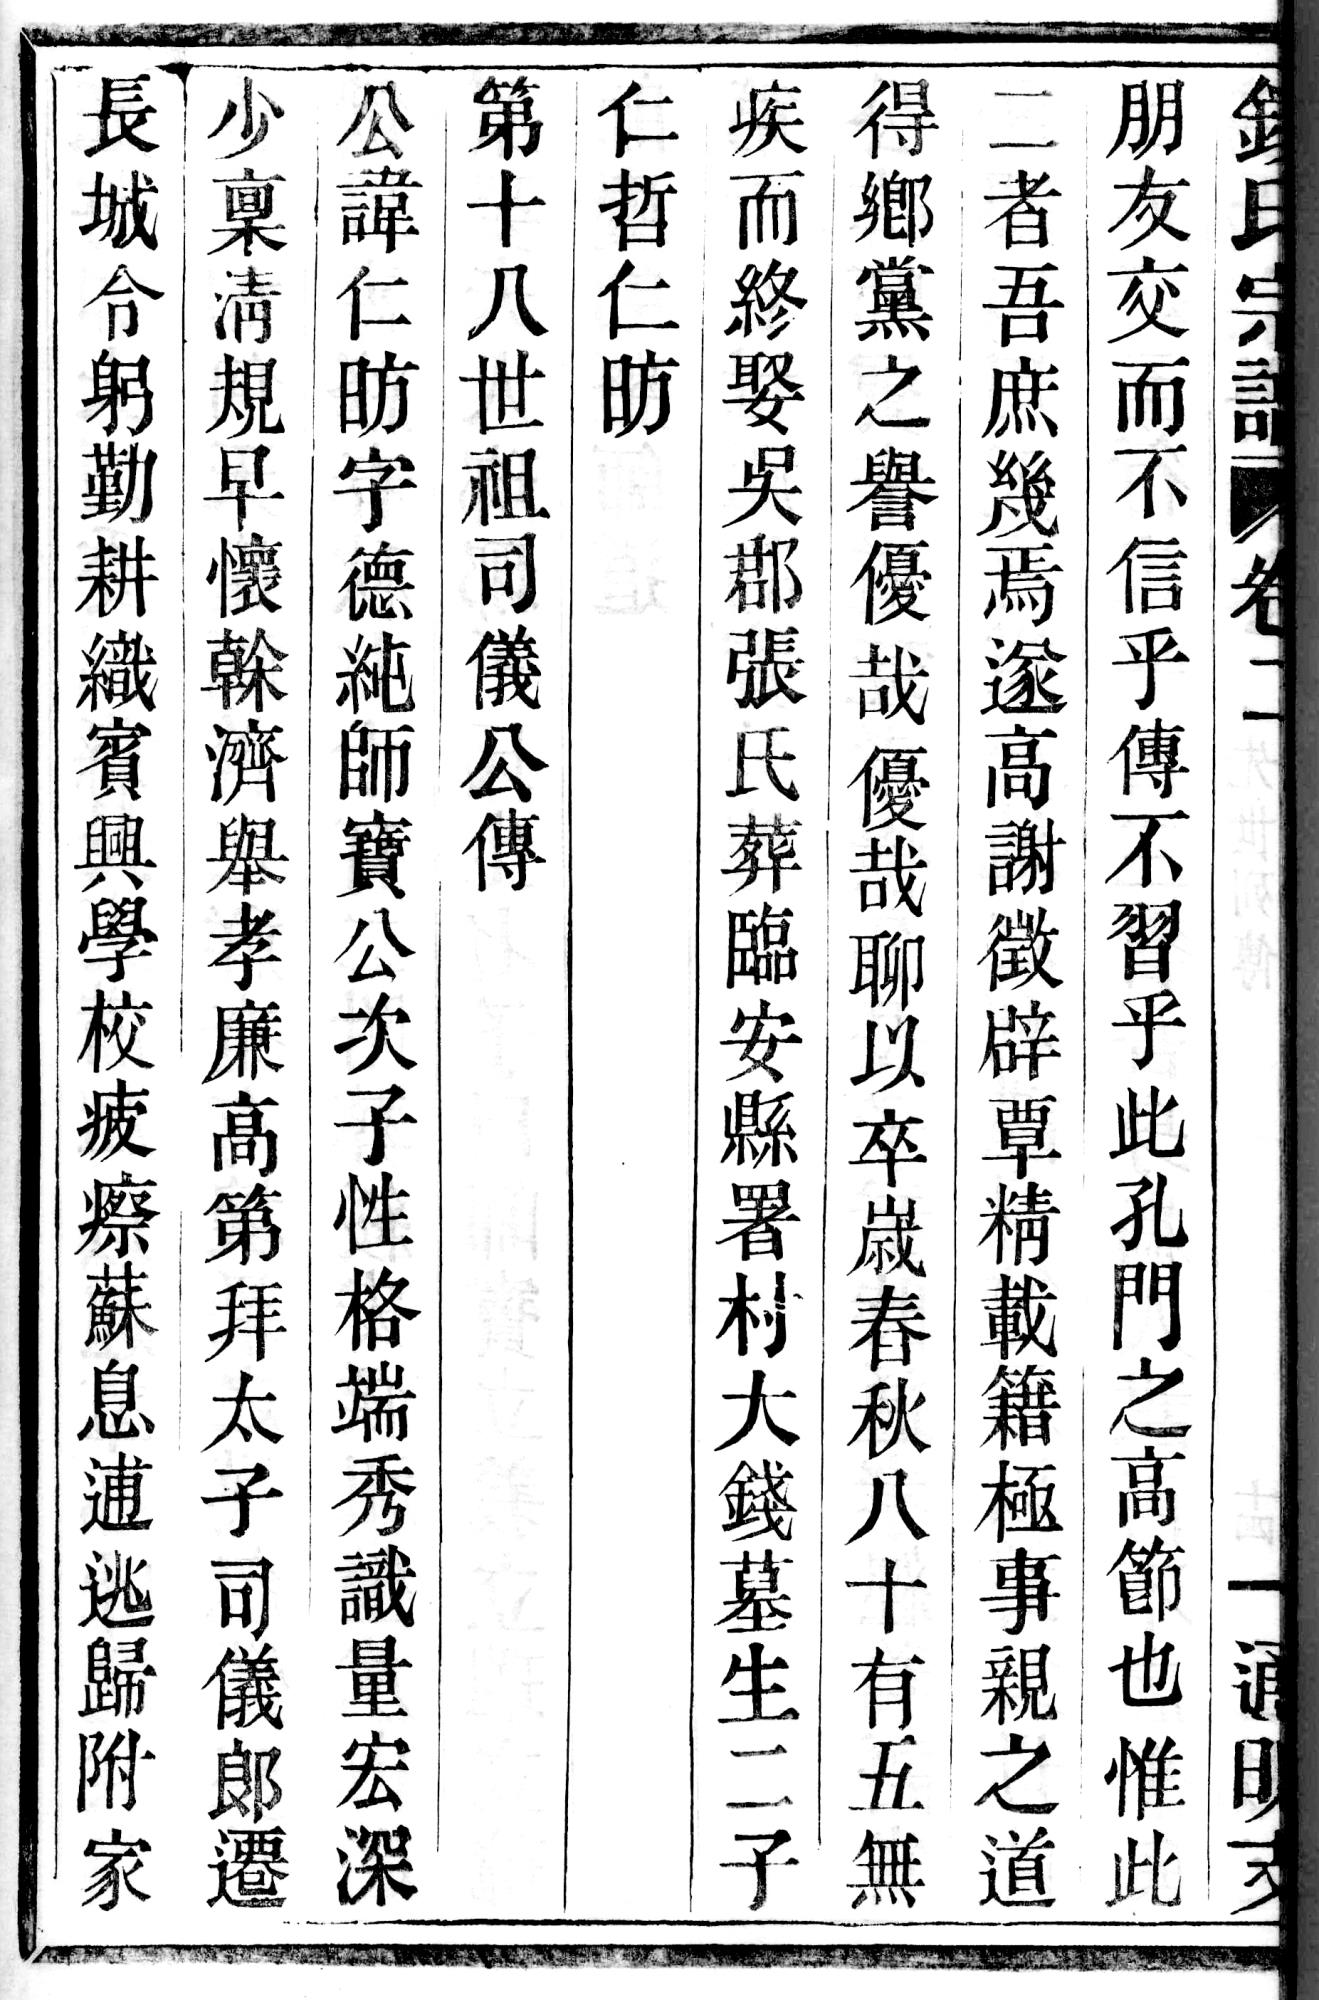 錢氏宗譜 卷二 通明支
朋友交而不信乎傳不習乎此孔門之高節也惟此
二者吾庶幾焉遂高謝徵辟覃精載籍極事親之道
得鄉黨之譽優哉優哉聊以卒歲春秋八十有五無
疾而終娶吳郡張氏葬臨安縣署村大錢墓生二子
仁哲仁昉
第十八世祖司儀公傳
公諱仁昉字德純師寶公次子性格端秀識量宏深
少稟清規早懷幹濟舉孝廉高第拜太子司儀郎遷
長城令躬勤耕織賓興學校疲瘵蘇息逋逃歸附家